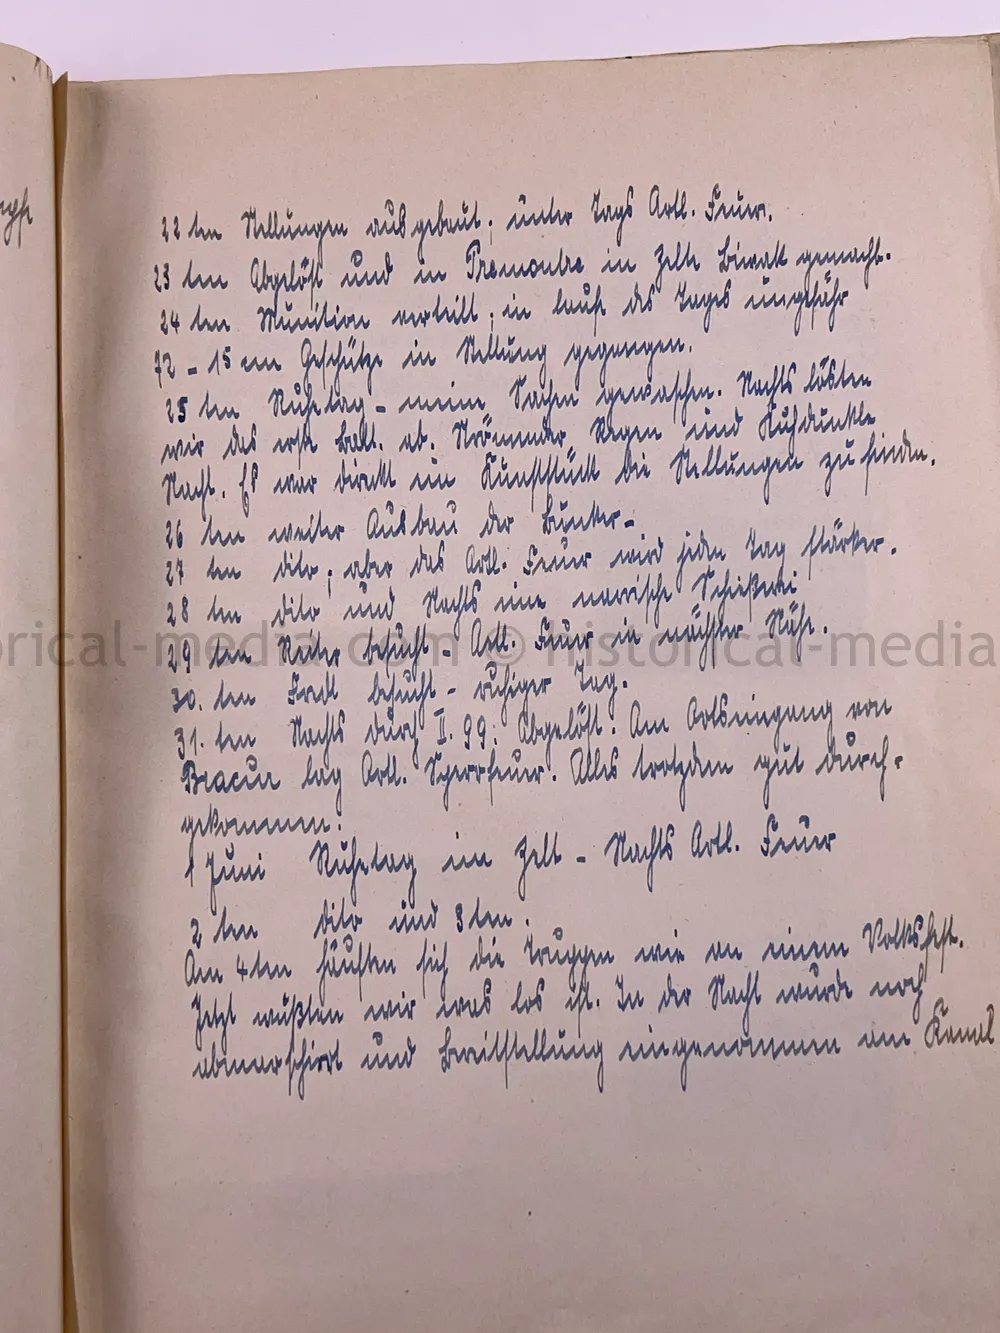 22 ten Stellungen ausgebaut; unter Tags Artl. Feuer.
23 ten Abgelöst und in Premontre in Zelte Biwak gemacht.
24 ten Munition verteilt; in lauf des Tages ungefähr
72 - 15 cm Geschütze in Stellung gegangen.
25 ten Ruhetag - meine Sachen gewaschen. Nachts lösten
wir das erste Batl. ab. Strömender Regen und Kuhdunkle
Nacht. Es war direkt ein Kunststück die Stellungen zu finden.
26 ten weiter Ausbau der Bunker-
27 ten dito; aber das Artl. Feuer wird jeden Tag stärker.
28 ten dito und Nachts eine narrische Schießerei
29 ten Reiter besucht - Artl. Feuer in nächster Nähe.
30. ten Fredl besucht - ruhiger Tag.
31. ten Nachts durch II. 99; Abgelöst. Am Ortseingang von
Bracur lag Artl. Sperrfeuer. Alles trotzdem gut durch-
gekommen.
1 Juni Ruhetag im Zelt - Nachts Artl. Feuer
2 ten dito und 3 ten.
Am 4 ten häuften sich die Truppen wie an einem Volksfest.
Jetzt wußten wir was los ist. In der Nacht wurde noch
abmarschirt und Bereitstellung eingenommen am Kanal
historical-media.com © historical-media